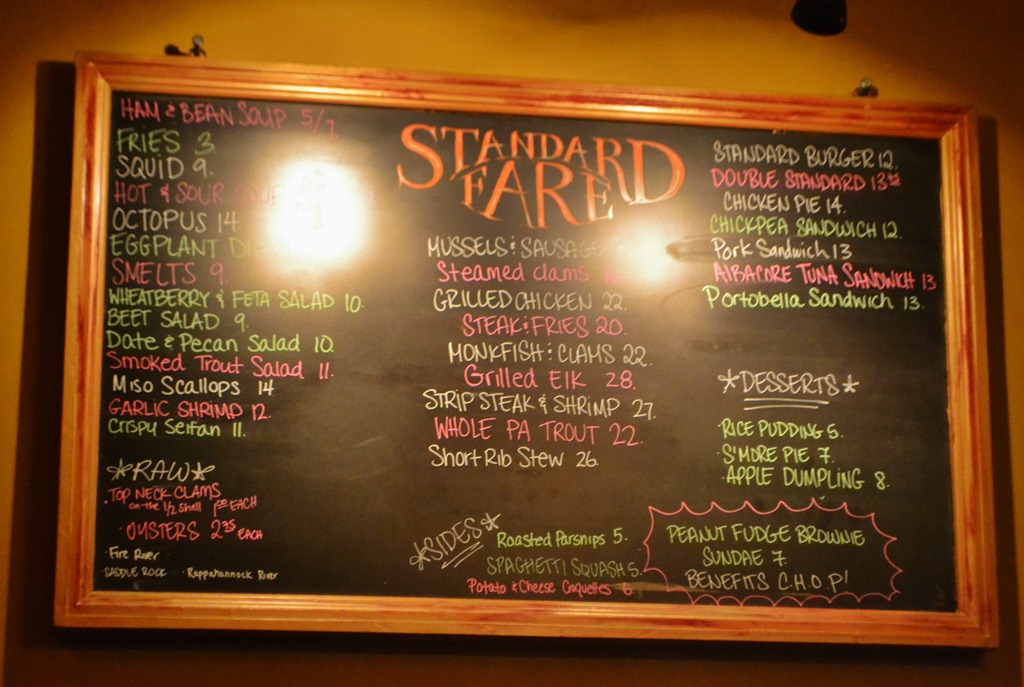 HAM & BEAN SOUP 5/7
FRIES 3
SQUID 9.
HOT & SOUR
OCTOPUS 14
EGGPLANT
SMELTS 9.
WHEATBERRY & FETA SALAD 10.
BEET SALAD 9.
Date & Pecan Salad 10.
Smoked Trout Salad 11.
Miso Scallops 14
GARLIC SHRIMP 12
Crispy Seitan 11.
*RAW*
·TOP NECK CLAMS
on-the 1/2 shell EACH
·OYSTERS 2 EACH
·Fire River
·SADDLE ROCK ·Rappahannock River
STANDARD
FARE
MUSSELS & SAUSAGE
Steamed clams
GRILLED CHICKEN 22.
STEAK & FRIES 20.
MONKFISH & CLAMS 22.
Grilled Elk 28.
STRIP STEAK & SHRIMP 27.
WHOLE PA TROUT 22.
Short Rib Stew 26.
*SIDES*
Roasted Parsnips 5.
SPAGHETTI SQUASH 5.
Potato & Cheese Croquettes 6.
STANDARD BURGER 12.
DOUBLE STANDARD 13
CHICKEN PIE 14.
CHICKPEA SANDWICH 12.
Pork Sandwich 13
AlBACORE TUNA SANDWICH 13
Portobella Sandwich 13.
*DESSERTS*
·RICE PUDDING 5.
·S'MORE PIE 7.
·APPLE DUMPLING 8.
PEANUT FUDGE BROWNIE
SUNDAE 7.
BENEFITS C.H.O.P!